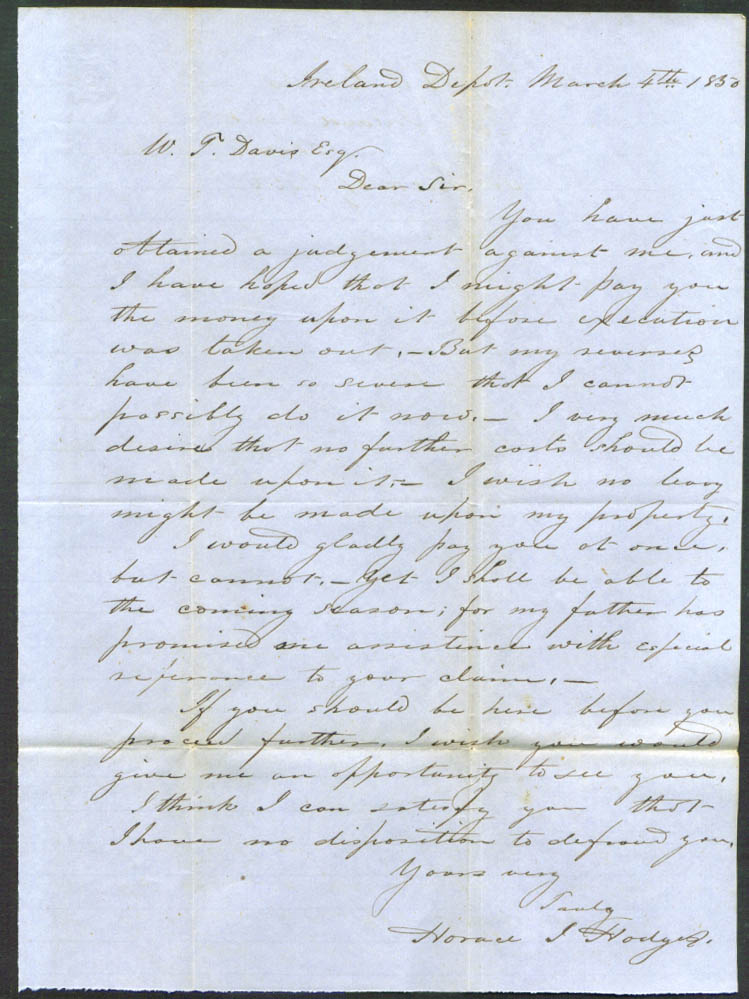 Ireland Depot. March 4th 1850
W. T. Davis Esq.
Dear Sir.
You have just
obtained a judgement against me, and
I have hoped that I might pay you
the money upon it before execution
was taken out. – But my reverses
have been so severe that I cannot
possibly do it now. – I very much
desire that no further costs should be
made upon it. – I wish no levy
might be made upon my property.
I would gladly pay you at once,
but cannot. – Yet I shall be able to
the coming season; for my father has
promised me assistance with especial
reference to your claim. –
If you should be here before you
proceed further, I wish you would
give me an opportunity to see you.
I think I can satisfy you that
I have no disposition to defraud you.
Yours very
Truly
Horace I Hodges.